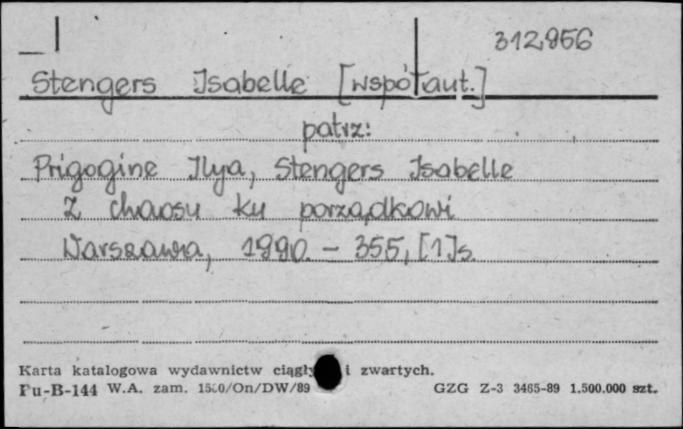 312,956
Stengers Isabelle [współaut.]
patrz:
Prigogine Ilya, Stengers Isabelle
Z chaosu ku porządkowi
Warszawa, 1990. - 355, [1] s.
Karta katalogowa wydawnictw i zwartych.
Pu-B-144 W.A. zam. /On/DW/89 GZG Z-3 3465-89 1.500.000 szt.